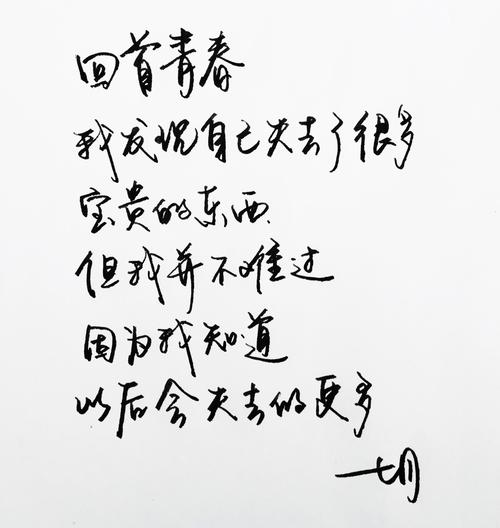 回首青春
我发现自己失去了很多
宝贵的东西
但我并不难过
因为我知道
以后会失去的更多
一七月